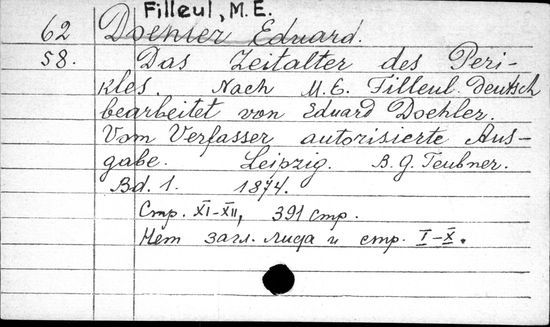 Filleul, M. E.
62 Doehler Eduard.
58. Das Zeitalter des Peri-
kles. Nach M. E. Filleul Deutsch
bearbeitet von Eduard Doehler.
Vom Verfasser autorisierte Aus-
gabe. Leipzig. B. G. Teubner.
Bd. 1. 1874.
Стр. XI-XII, 391 стр.
Нет загл. листа и стр. I-X.